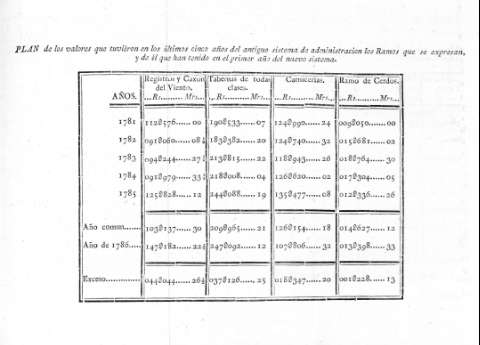 PLAN de los valores que tuvieron en los últimos cinco años del antiguo sistema de administracion los Ramos que se expresan,
y de él que han tenido en el primer año del nuevo sistema.
AÑOS. Registro y Caxon del Viento. Tabernas de todas clases. Carnicerías. Ramo de Cerdos.
...Rs......... Mrs... ...Rs......... Mrs... ...Rs......... Mrs... ...Rs......... Mrs...
1781 112@576...... 00 190@533...... 07 124@990...... 24 009@050...... 00
1782 091@060...... 08 183@382...... 20 124@740...... 32 015@681...... 02
1783 094@244...... 27 213@815...... 22 118@943...... 26 018@764...... 30
1784 091@979...... 33 218@008...... 04 126@620...... 02 017@304...... 05
1785 125@828...... 12 244@088...... 19 135@477...... 08 012@336...... 26
Año comun...... 103@137...... 30 209@965...... 21 126@154...... 18 014@627...... 12
Año de 1786... 147@182...... 22 247@092...... 12 107@806...... 32 013@398...... 33
Exceso............ 044@044...... 26 037@126...... 25 018@347...... 20 001@228...... 13